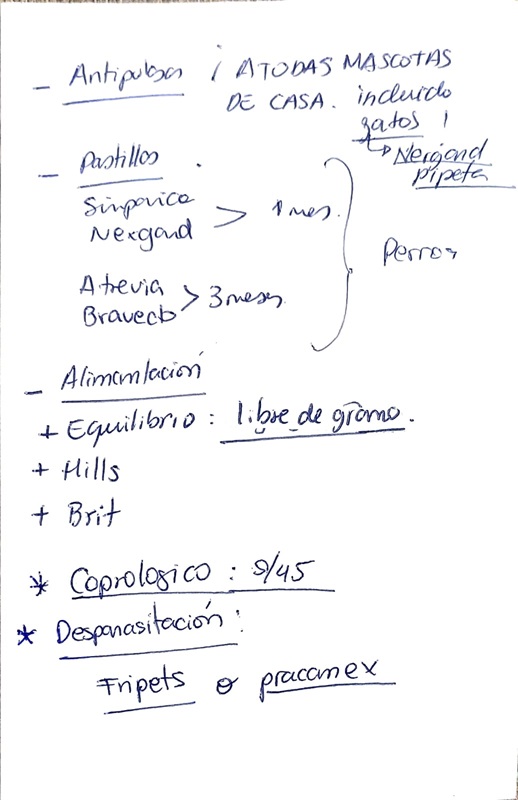 - Antipulgas ¡ A TODAS MASCOTAS
DE CASA. incluido
gatos !
→ Nexgand
pipeta
- Pastillas .
Simparica
Nexgand > 1 mes.
Atrevia
Bravecto > 3 meses
Perros
- Alimentación
+ Equilibrio : libre de grano.
+ Hills
+ Brit
* Coprologico : s/45
* Desparasitación :
Fripets o pracanex